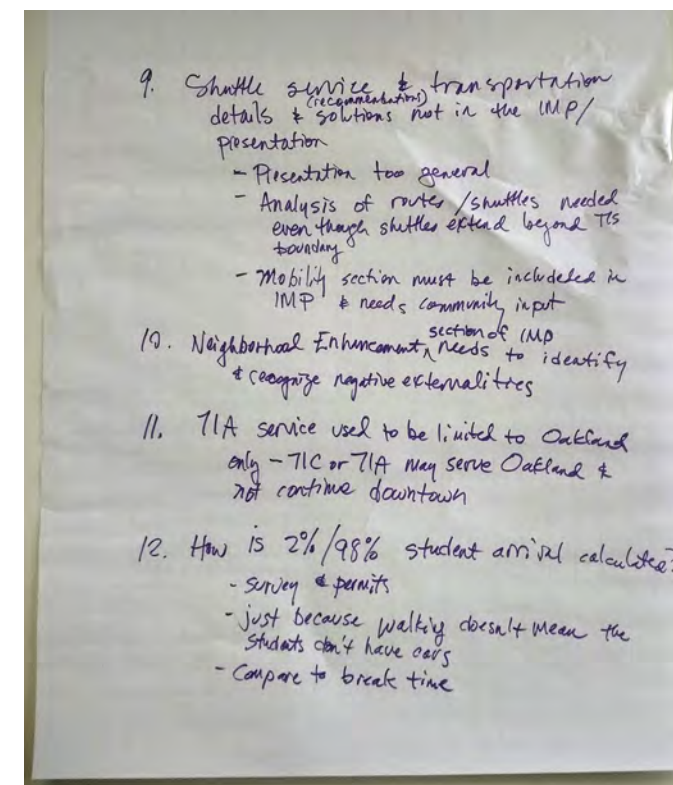 9. Shuttle service & transportation
(recommendations)
details & solutions not in the IMP/
presentation
- Presentation too general
- Analysis of routes/shuttles needed
even though shuttles extend beyond TIS
boundary
- Mobility section must be includeded in
IMP & needs community input
section of IMP
10. Neighborhood Enhancement ^ needs to identify
& recognize negative externalitres
11. 71A service used to be limited to Oakland
only - 71C or 71A may serve Oakland &
not continue downtown
12. How is 2%/98% student arrival calculated?
- Survey & permits
- just because walking doesn't mean the
students don't have cars
- Compare to break time